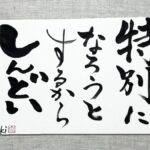 特別に
なろうと
するから
しんどい
ki